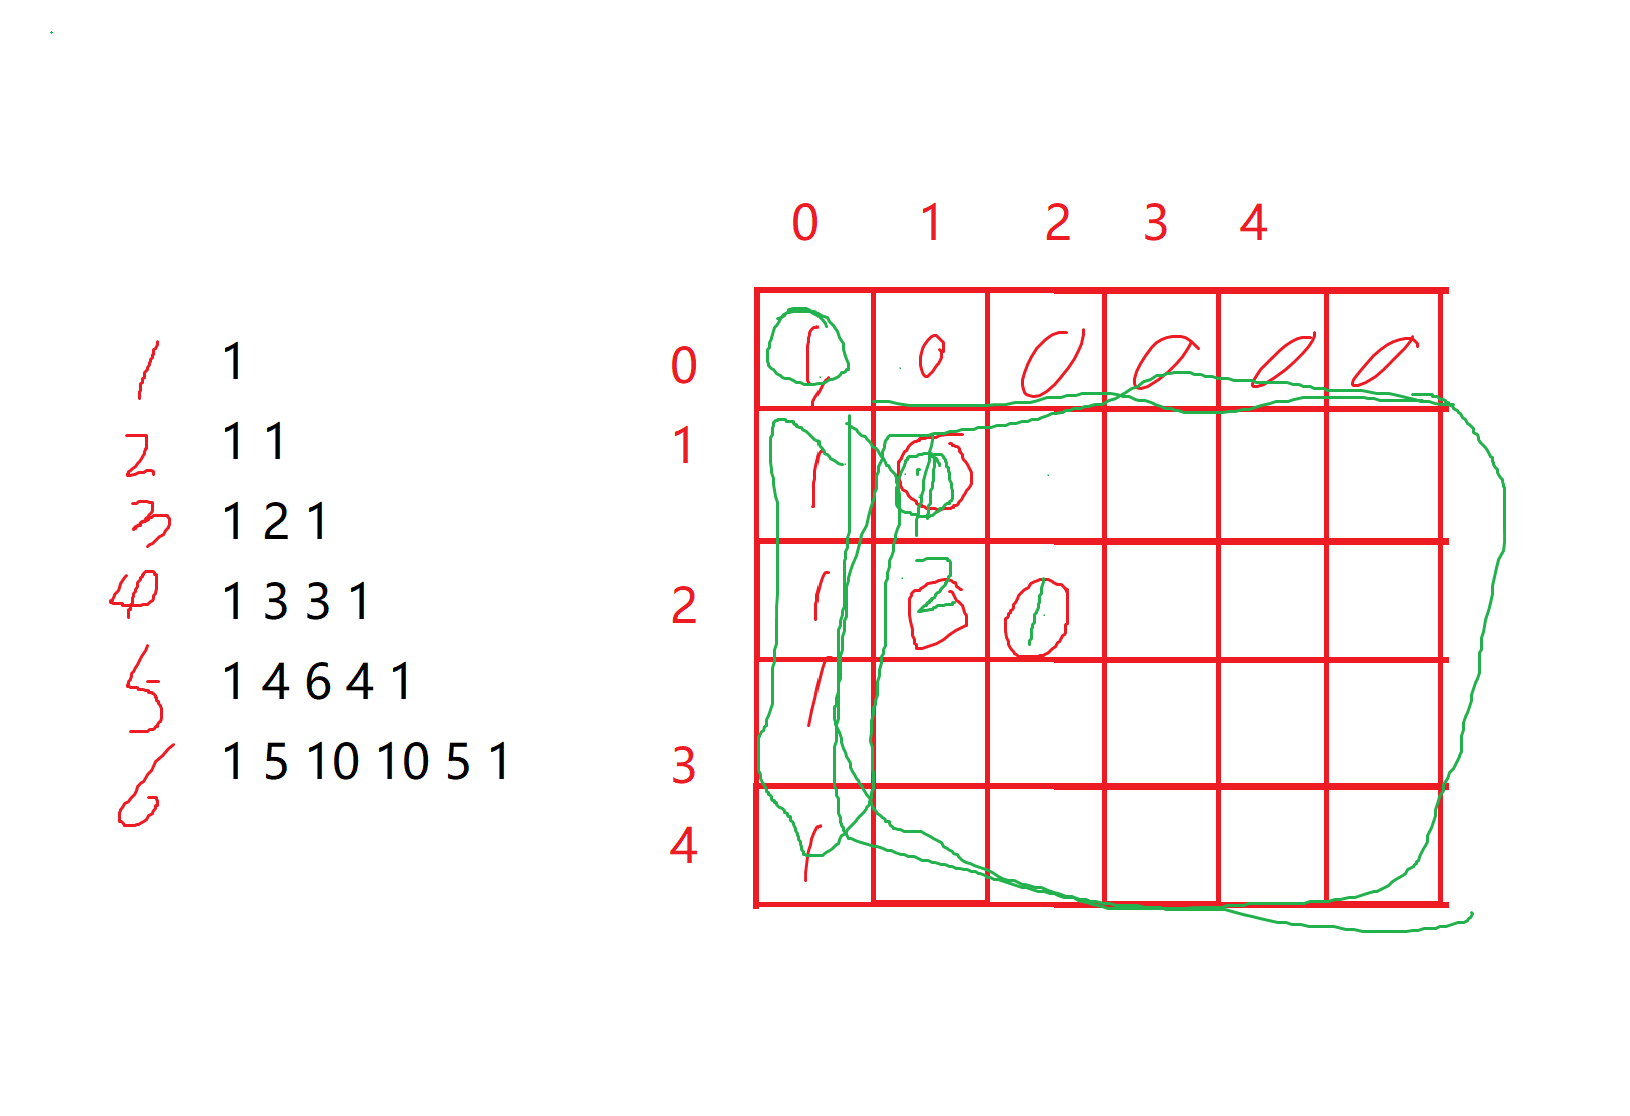 0 1 2 3 4
1 1
2 1 1
3 1 2 1
4 1 3 3 1
5 1 4 6 4 1
6 1 5 10 10 5 1
0 1 0 0 0 0 0
1 1 1
2 1 2 1
3 1
4 1